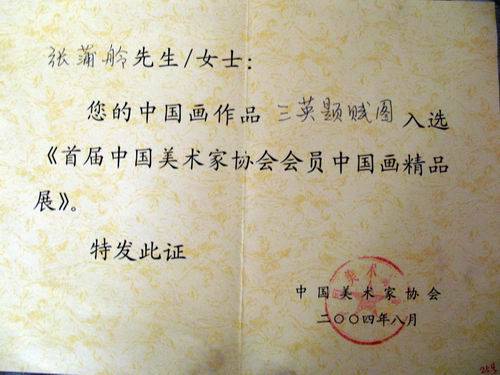 张蒲舲先生/女士：
您的中国画作品 三英题赋图 入选
《首届中国美术家协会会员中国画精品
展》。
特发此证
中国美术家协会
二〇〇四年八月